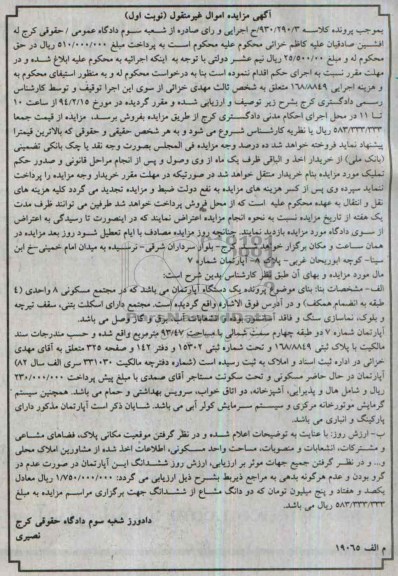 آگهی مزایده اموال غیرمنقول (نوبت اول)
بموجب پرونده کلاسه ۹۳۰/۲۹۰/۳ح اجرایی و رای صادره از شعبه سوم دادگاه عمومی / حقوقی کرج له
افشین صادقیان علیه کاظم خزائی محکوم علیه محکوم است به پرداخت مبلغ ۵۱۰/۰۰۰/۰۰۰ ریال در حق
محکوم له و مبلغ ۲۵/۵۰۰/۰۰ ریال نیم عشر دولتی با توجه به اینکه اجرائیه به محکوم علیه ابلاغ شده و در
مهلت مقرر نسبت به اجرای حکم اقدام ننموده است بنا به درخواست محکوم له و به منظور استیفای محکوم به
و هزینه اجرایی ۱۶۸/۸۸۴۹ متعلق به شخص ثالث مهدی خزائی از سوی این اجرا توقیف و توسط کارشناس
رسمی دادگستری کرج بشرح زیر توصیف و ارزیابی شده و مقرر گردیده در مورخ ۹۴/۲/۱۵ از ساعت ۱۰
تا ۱۱ در محل اجرای احکام مدنی دادگستری کرج از طریق مزایده بفروش برسد، مزایده از قیمت جمعا
۵۸۳/۳۳۳/۳۳۳ ریال یا نظریه کارشناس شروع می شود و به هر شخص حقیقی و حقوقی که بالاترین قیمترا
پیشنهاد نماید فروخته خواهد شد ده درصد وجه مزایده فی المجلس بصورت وجه نقد یا چک بانکی تضمینی
(بانک ملی) از خریدار اخذ و الباقی ظرف یک ماه از وی وصول و پس از انجام مراحل قانونی و صدور حکم
تملیک مورد مزایده بنام خریدار منتقل خواهد شد در صورتیکه در مهلت مقرر خریدار وجه مزایده را پرداخت
ننماید سپرده وی پس از کسر هزینه های مزایده به نفع دولت ضبط و مزایده تجدید می گردد کلیه هزینه های
نقل و انتقال به عهده محکوم علیه است که از محل فروش پرداخت خواهد شد طرفین می توانند ظرف مدت
یک هفته از تاریخ مزایده نسبت به نحوه انجام مزایده اعتراض نمایند که در اینصورت تا رسیدگی به اعتراض
از سوی دادگاه مورد مزایده بازدید نمایند. چنانچه روز مزایده مصادف با ایام تعطیل شود روز بعد مزایده در
همان ساعت و مکان برگزار خواهد شد بلوار سرداران شرقی- نرسیده به میدان امام خمینی- خ ابن
سینا- کوچه ابوریحان غربی- پلاک ۸- آپارتمان شماره ۷
مال مورد مزایده و بهای آن طبق نظر کارشناس بدین شرح است:
الف- مشخصات بنا: بنای موضوع پرونده یک دستگاه آپارتمان می باشد که در مجتمع مسکونی ۸ واحدی (۴
طبقه به انضمام همکف) و در آدرس فوق الاشاره واقع گردیده است. مجتمع دارای اسکلت بتنی، سقف تیرچه
و بلوک، نماسازی سنگ و فاقد آسانسور بوده و انشعابات آب، برق و گاز وصل می باشد.
آپارتمان شماره ۷ دو طبقه چهارم سمت شمالی با مساحت ۹۳/۴۷ مترمربع واقع شده و حسب مندرجات سند
مالکیت با پلاک ثبتی ۱۶۸/۸۸۴۹ و تحت شماره ثبتی ۱۵۳۰۲ و دفتر ۱۴۲ و صفحه ۳۲۵ متعلق به آقای مهدی
خزائی در اداره ثبت اسناد و املاک به ثبت رسیده است (شماره دفترچه مالکیت ۳۳۱۰۳۰ سری الف سال ۸۲)
آپارتمان در حال حاضر مسکونی و تحت سکونت مستاجر آقای صمدی با مبلغ پیش پرداخت ۲۳۰/۰۰۰/۰۰۰
ریال و شامل هال و پذیرایی، آشپزخانه، دو اتاق خواب، سرویس بهداشتی و حمام می باشد. همچنین سیستم
گرمایش موتورخانه مرکزی و سیستم سرمایش کولر آبی می باشد. شایان ذکر است آپارتمان مذکور دارای
پارکینگ و انباری می باشد.
ب- ارزش روز: با عنایت به توضیحات اعلام شده و در نظر گرفتن موقعیت مکانی پلاک، فضاهای مشاعی
و مشترکات، انشعابات و منصوبات، مساحت واحد مسکونی، اطلاعات اخذ شده از مشاورین املاک محلی
و... و در نظر گرفتن جمیع جهات موثر بر ارزیابی، ارزش روز ششدانگ این آپارتمان در صورت عدم در
گرو بودن و عدم هرگونه بدهی به مراجع ذیربط بشرح ذیل ارزیابی می گردد: ۱/۷۵۰/۰۰۰/۰۰۰ ریال معادل
یکصد و هفتاد و پنج میلیون تومان که دو دانگ مشاع از ششدانگ جهت برگزاری مراسم مزایده به مبلغ
۵۸۳/۳۳۳/۳۳۳ ریال می باشد.
دادورز شعبه سوم دادگاه حقوقی کرج
نصیری
م الف ۱۹۰۶۵